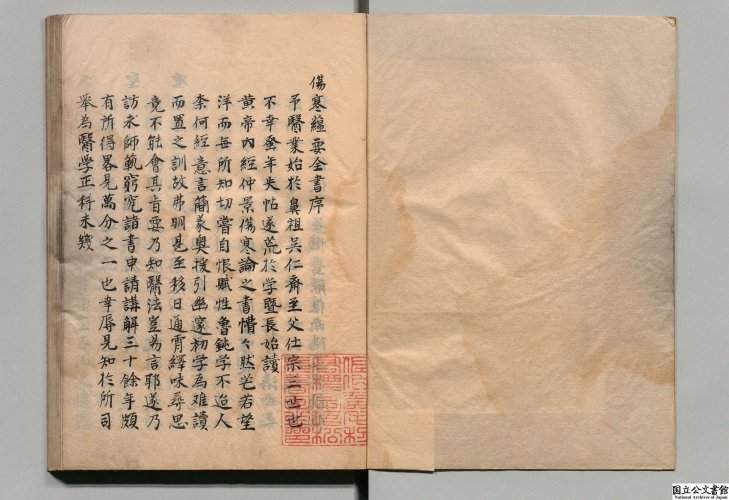 傷寒蘊要全書序
予醫業始於鼻祖吳仁齊至父仕宗三世也
不幸蚤年失怙遂荒於学暨長始讀
黄帝内經仲景傷寒論之書懵々然茫若望
洋而每所知切嘗自恨賦性魯鈍学不迨人
柰何經意言簡義奥援引幽邃初学為难讀
而置之訓故弗明甚至移日通宵繹味尋思
竟不能會其旨要乃知醫法豈易言耶遂乃
訪求師範窮究諸書申請講解三十餘年頗
有所得畧見萬分之一也幸辱見知於所司
舉為醫學正科未幾
国立公文書館
National Archives of Japan